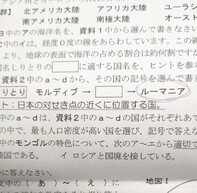 群〕 北アメリカ大陸 アフリカ大陸 ユーラシ
南アメリカ大陸 南極大陸 オースト
中のアの海洋名を, 資料1中から選んで書きなさい。
中のイは, 経度0度の緯線をあらわしています。この線
より, 地球の表面で海洋の占める割合は約何割ですか
国名しりとりの に適する国名を, ヒントを参
資料2中のa～dから, その国の記号を選んで書
りとり モルディブ→ →ルーマニア
ト:日本の対せき点の近くに位置する国。
, 資料2中のa～dの国がそれぞれあて
の中で, 最も人口密度が高い国を選び, 記号で答えな
中のモンゴルの特色について, 次のア～エから適切で
こい。 イ ロシアと国境を接している。
に答えなさい。
文中の( あ )～( え )に